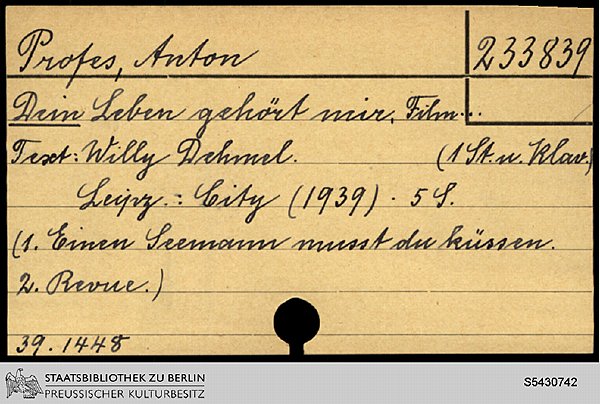 Profes, Anton
233839
Dein Leben gehört mir. Film...
Text: Willy Dehmel. (1 St. u. Klav.)
Leipz.: City (1939). 5 S.
(1. Einen Seemann musst du küssen.
2. Revue.)
39. 1448
STAATSBIBLIOTHEK ZU BERLIN
PREUSSISCHER KULTURBESITZ
S5430742